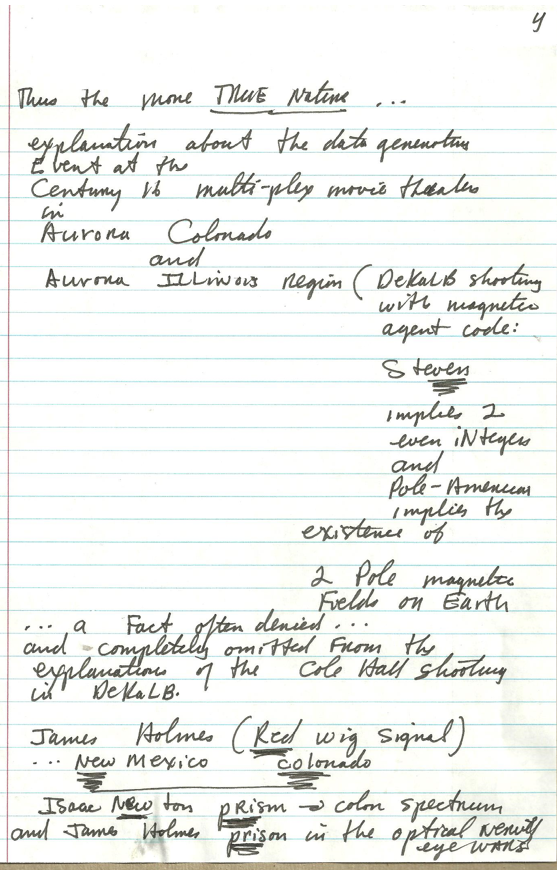 4
Thus the more TRUE Nature ...
explanation about the data generating
Event at the
Century 16 multi-plex movie theater
in
Aurora Colorado
and
Aurora ILLinois region ( DeKALB shooting
with magnetic
agent code:
Stevens
implies 2
even iNtegers
and
Pole-American
implies the
existence of
2 Pole magnetic
Fields on Earth
... a Fact often denied ...
and completely omitted From the
explanations of the Cole Hall shooting
in DeKALB.
James Holmes (Red wig signal)
... New Mexico colorado
Isaac New ton prism → color spectrum
and James Holmes prison in the optical nerve
eye WARS